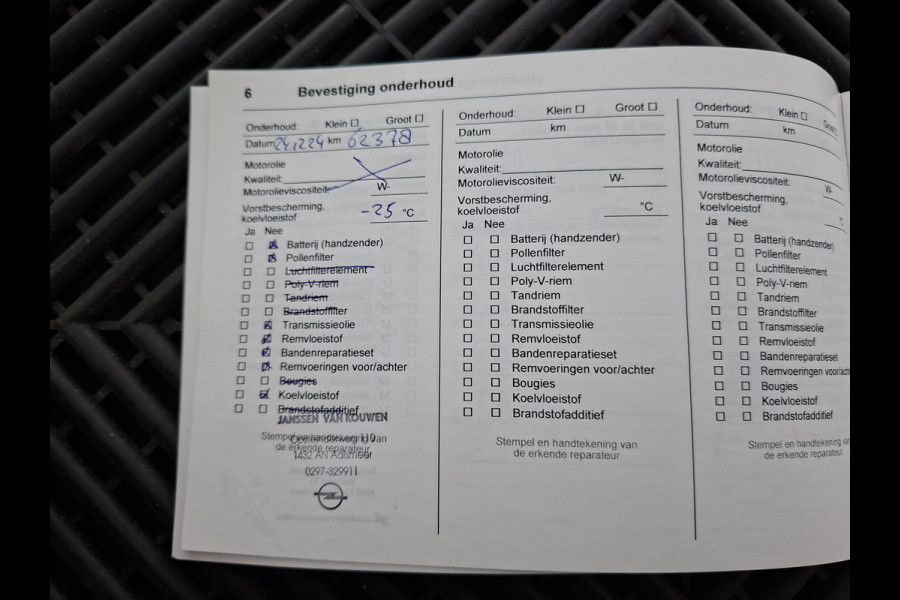 6 Bevestiging onderhoud
Onderhoud: Klein ☐ Groot ☐
Datum 24.12.24 km 62378
Motorolie
Kwaliteit:
Motorolieviscositeit: W-
Vorstbescherming,
koelvloeistof -25 °C
Ja Nee
☐ ☒ Batterij (handzender)
☐ ☒ Pollenfilter
☐ ☐ Luchtfilterelement
☐ ☐ Poly-V-riem
☐ ☐ Tandriem
☐ ☐ Brandstoffilter
☐ ☒ Transmissieolie
☐ ☒ Remvloeistof
☐ ☒ Bandenreparatieset
☐ ☒ Remvoeringen voor/achter
☐ ☐ Bougies
☐ ☒ Koelvloeistof
☐ ☐ Brandstofadditief
JANSSEN VAN KOUWEN
Stempel en handtekening van
de erkende reparateur
1432 AN Aalsmeer
0297-329911
Onderhoud: Klein ☐ Groot ☐
Datum km
Motorolie
Kwaliteit:
Motorolieviscositeit: W-
Vorstbescherming,
koelvloeistof °C
Ja Nee
☐ ☐ Batterij (handzender)
☐ ☐ Pollenfilter
☐ ☐ Luchtfilterelement
☐ ☐ Poly-V-riem
☐ ☐ Tandriem
☐ ☐ Brandstoffilter
☐ ☐ Transmissieolie
☐ ☐ Remvloeistof
☐ ☐ Bandenreparatieset
☐ ☐ Remvoeringen voor/achter
☐ ☐ Bougies
☐ ☐ Koelvloeistof
☐ ☐ Brandstofadditief
Stempel en handtekening van
de erkende reparateur
Onderhoud: Klein ☐ Groot ☐
Datum km
Motorolie
Kwaliteit:
Motorolieviscositeit: W-
Vorstbescherming,
koelvloeistof
Ja Nee
☐ ☐ Batterij (handzender)
☐ ☐ Pollenfilter
☐ ☐ Luchtfilterelement
☐ ☐ Poly-V-riem
☐ ☐ Tandriem
☐ ☐ Brandstoffilter
☐ ☐ Transmissieolie
☐ ☐ Remvloeistof
☐ ☐ Bandenreparatieset
☐ ☐ Remvoeringen voor/ach
☐ ☐ Bougies
☐ ☐ Koelvloeistof
☐ ☐ Brandstofadditief
Stempel en handtekening van
de erkende reparateur